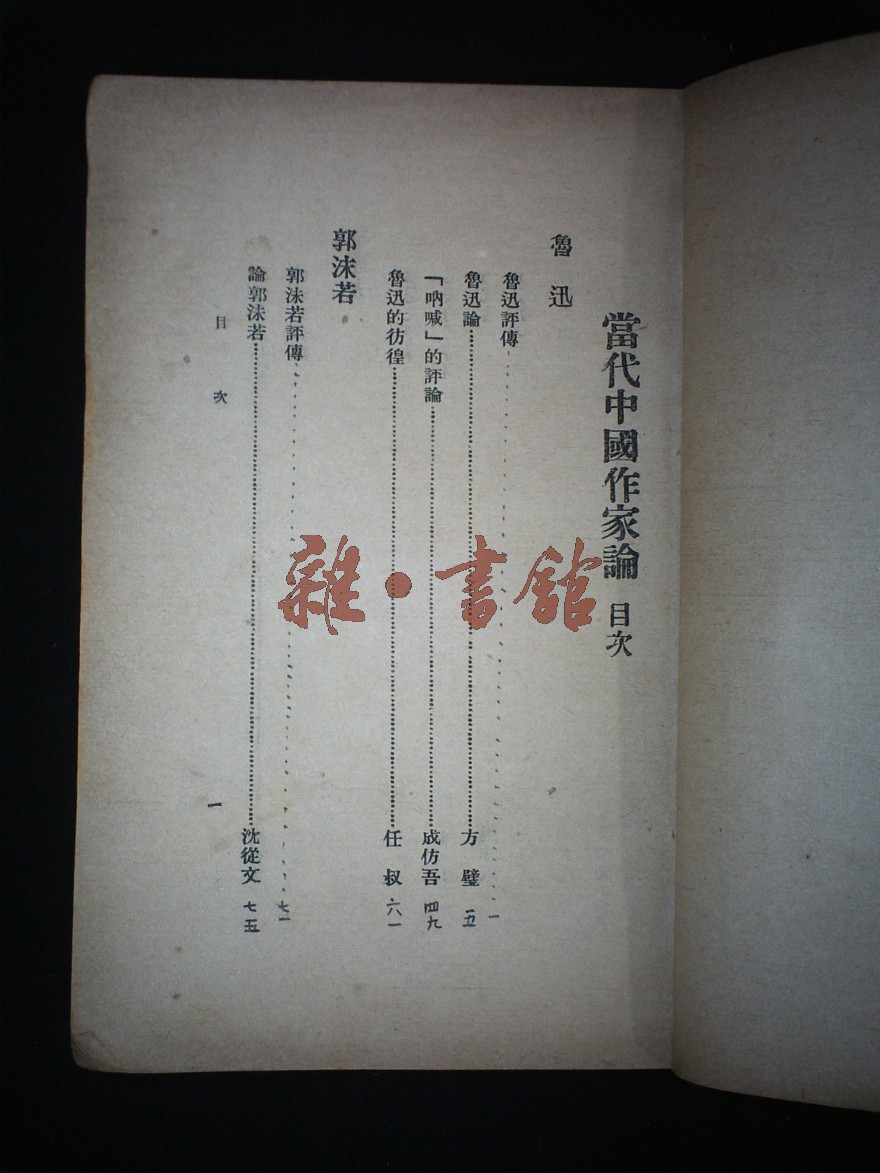 當代中國作家論 目次
魯迅
魯迅評傳 一
魯迅論 方璧 五
「吶喊」的評論 成仿吾 四九
魯迅的彷徨 任叔 六一
郭沫若
郭沫若評傳 七一
論郭沫若 沈從文 七五
目次 一
雜·書館